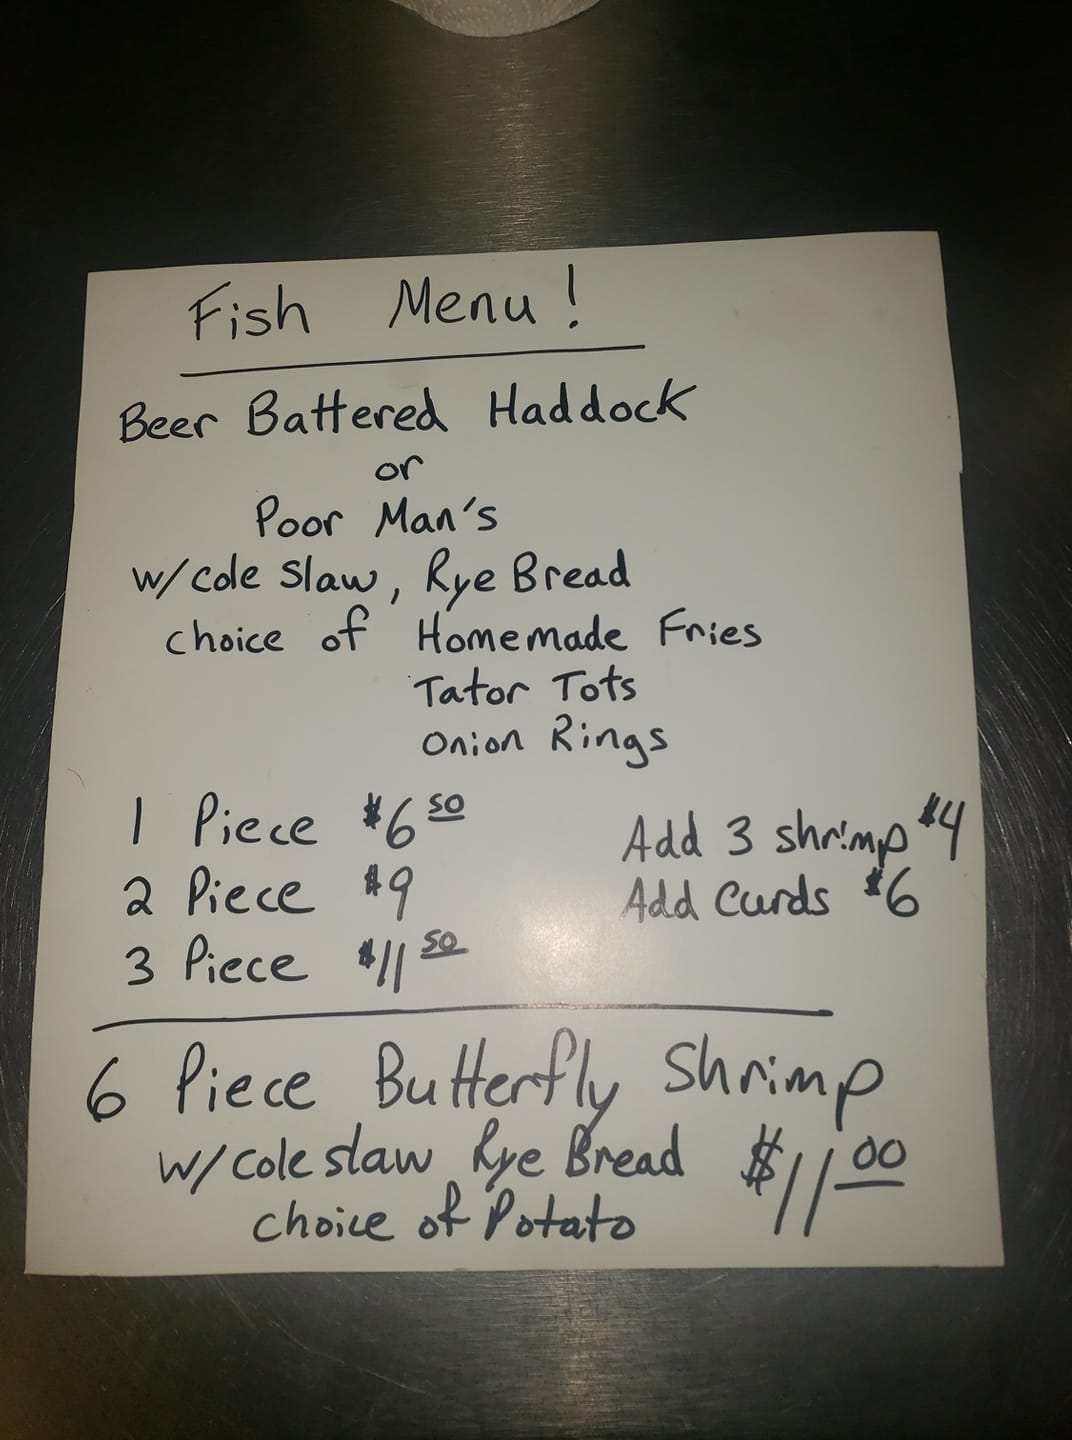 Fish Menu!
Beer Battered Haddock
or
Poor Man's
w/cole slaw, Rye Bread
choice of Homemade Fries
Tator Tots
Onion Rings
1 Piece $6 50
2 Piece $9
3 Piece $11 50
Add 3 shrimp $4
Add Curds $6
6 Piece Butterfly Shrimp
w/cole slaw Rye Bread $11 00
choice of Potato